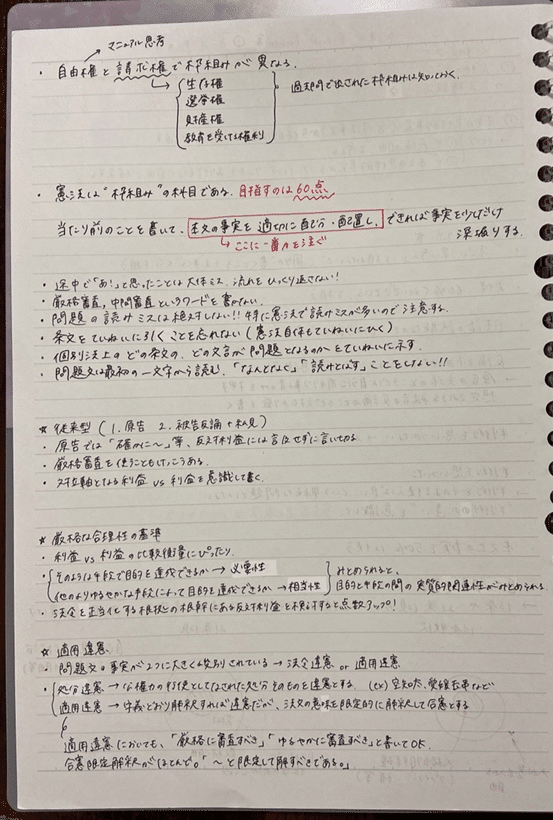 マニュアル思考
・自由権と請求権で枠組みが異なる。
生存権
選挙権
財産権
教育を受ける権利
過去問で出された枠組みは知っておく。
・憲法は"枠組み"の科目である。目指すのは60点
当たり前のことを書いて、本文の事実を適切に自分・配置し、できれば事実を少しだけ
深堀りする。
↳ ここに一番力を注ぐ
・途中で「あ!」と思ったことは大体ミス。流れをひっくり返さない!
・厳格審査、中間審査というワードを書かない。
・問題の読みミスは絶対しない!!特に憲法で読みミスが多いので注意する。
・条文をていねいに引くことを忘れない(憲法自体もていねいにひく)
・個別法上のどの条文の、どの文言が問題となるのかをていねいに示す。
・問題文は最初の一文字から読む。「なんとなく」「読みとばす」ことをしない!!
☆ 従来型(1.原告 2.被告反論+私見)
・原告では「確かに〜」等、反対利益には言及せずに言い切る
・厳格審査を使うこともけっこうある。
・対立軸となる利益 vs 利益を意識して書く。
☆ 厳格な合理性の基準
・利益 vs 利益の比較衡量にぴったり。
・そのような手段で目的を達成できるか → 必要性
他のよりゆるやかな手段によって目的を達成できるか → 相当性
みとめられると、
目的と手段の間の実質的関連性がみとめられる。
・法令を正当化する根拠の根幹にある反対利益を検討すると点数アップ!
☆ 適用違憲
・問題文の事実が2つに大きく峻別されている → 法令違憲 or 適用違憲
・処分違憲 → 公権力の行使としてなされた処分そのものを違憲とする。(ex) 空知太、愛媛玉串など
適用違憲 → 字義どおり解釈すれば違憲だが、法文の意味を限定的に解釈して合憲とする
適用違憲においても、「厳格に審査すべき」「ゆるやかに審査すべき」と書いてOK.
合憲限定解釈がほとんど。「〜と限定して解すべきである。」